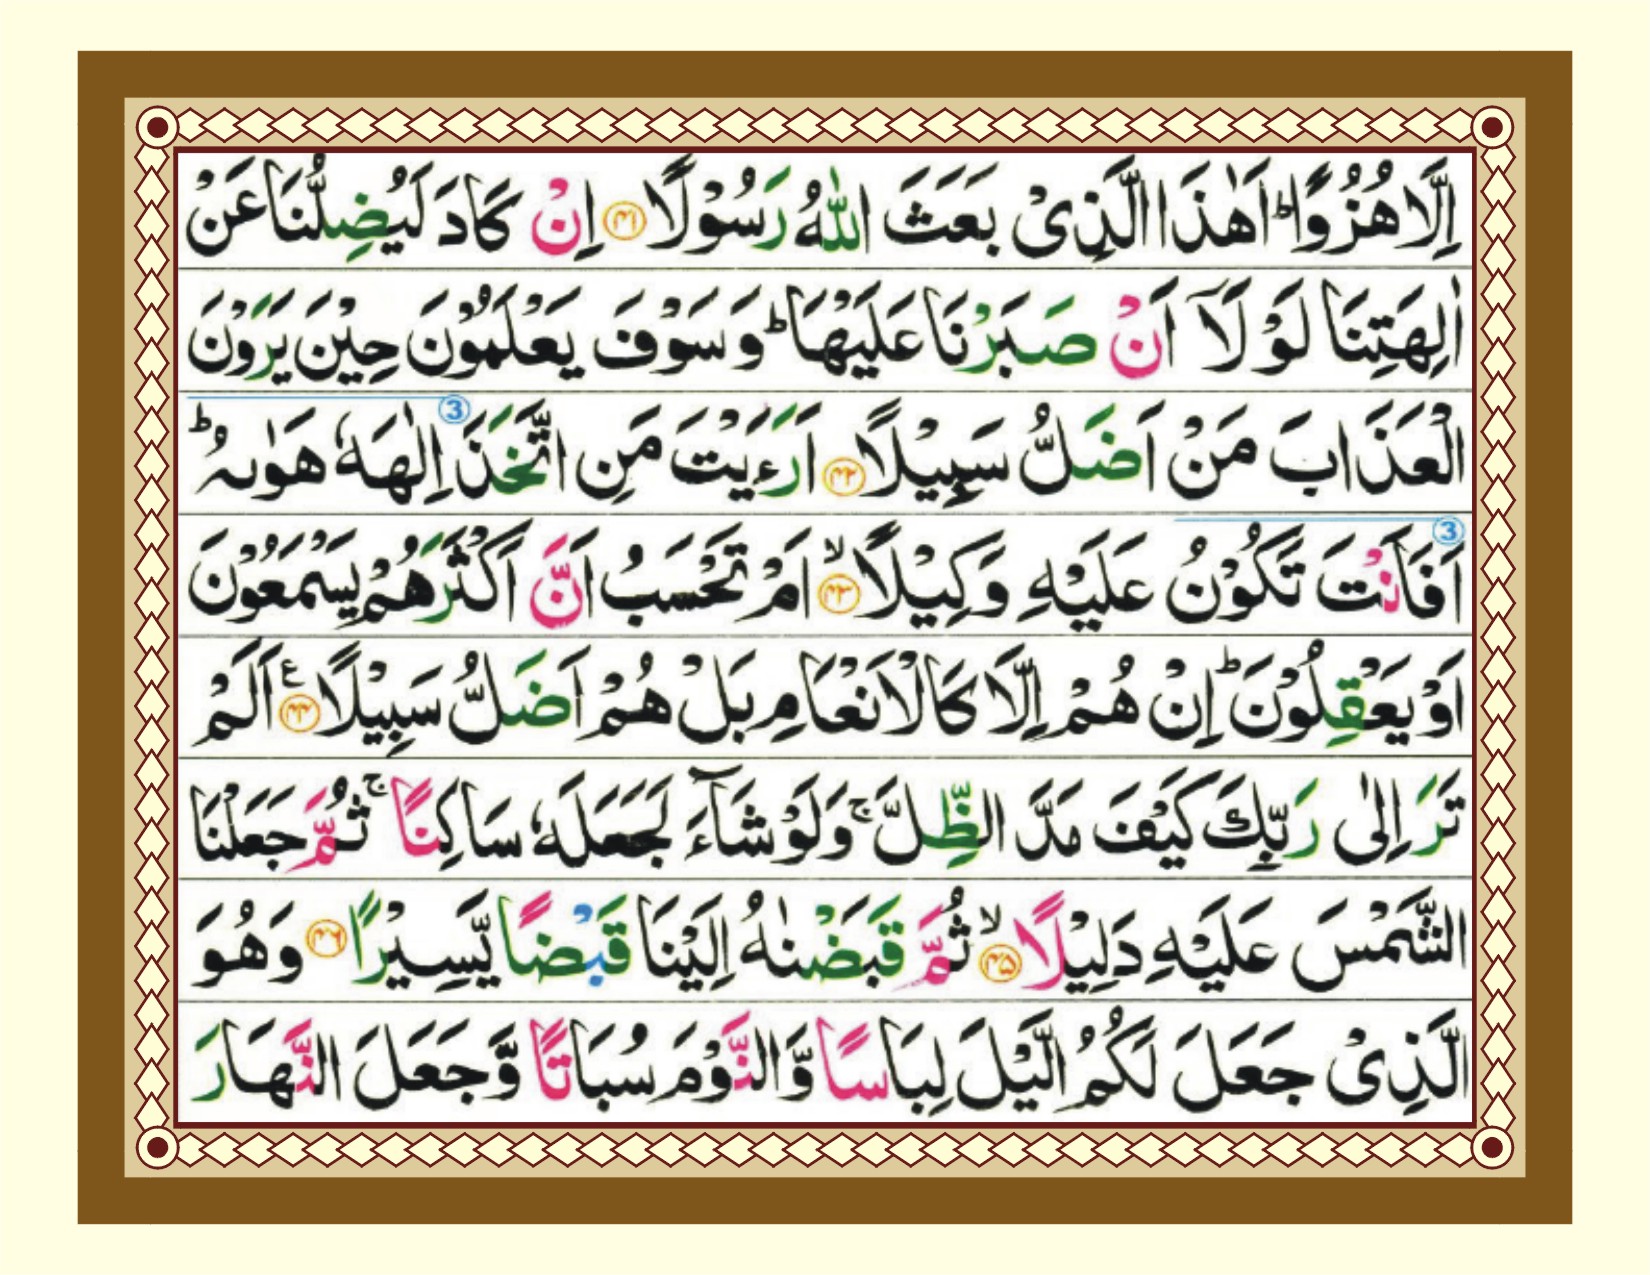 اِلَّا هُزُوًا ؕ اَهٰذَا الَّذِیْ بَعَثَ اللّٰهُ رَسُوْلًا ۴۱ اِنْ كَادَ لَیُضِلُّنَا عَنْ
اٰلِهَتِنَا لَوْ لَاۤ اَنْ صَبَرْنَا عَلَیْهَا ؕ وَ سَوْفَ یَعْلَمُوْنَ حِیْنَ یَرَوْنَ
الْعَذَابَ مَنْ اَضَلُّ سَبِیْلًا ۴۲ اَرَءَیْتَ مَنِ اتَّخَذَ 3 اِلٰهَهٗ هَوٰىهُ ؕ
3 اَفَاَنْتَ تَكُوْنُ عَلَیْهِ وَكِیْلًا ۙ ۴۳ اَمْ تَحْسَبُ اَنَّ اَكْثَرَهُمْ یَسْمَعُوْنَ
اَوْ یَعْقِلُوْنَ ؕ اِنْ هُمْ اِلَّا كَالْاَنْعَامِ بَلْ هُمْ اَضَلُّ سَبِیْلًا ۴۴ ع اَلَمْ
تَرَ اِلٰى رَبِّكَ كَیْفَ مَدَّ الظِّلَّ ۚ وَ لَوْ شَآءَ لَجَعَلَهٗ سَاكِنًا ۚ ثُمَّ جَعَلْنَا
الشَّمْسَ عَلَیْهِ دَلِیْلًا ۙ ۴۵ ثُمَّ قَبَضْنٰهُ اِلَیْنَا قَبْضًا یَّسِیْرًا ۴۶ وَ هُوَ
الَّذِیْ جَعَلَ لَكُمُ الَّیْلَ لِبَاسًا وَّ النَّوْمَ سُبَاتًا وَّ جَعَلَ النَّهَارَ